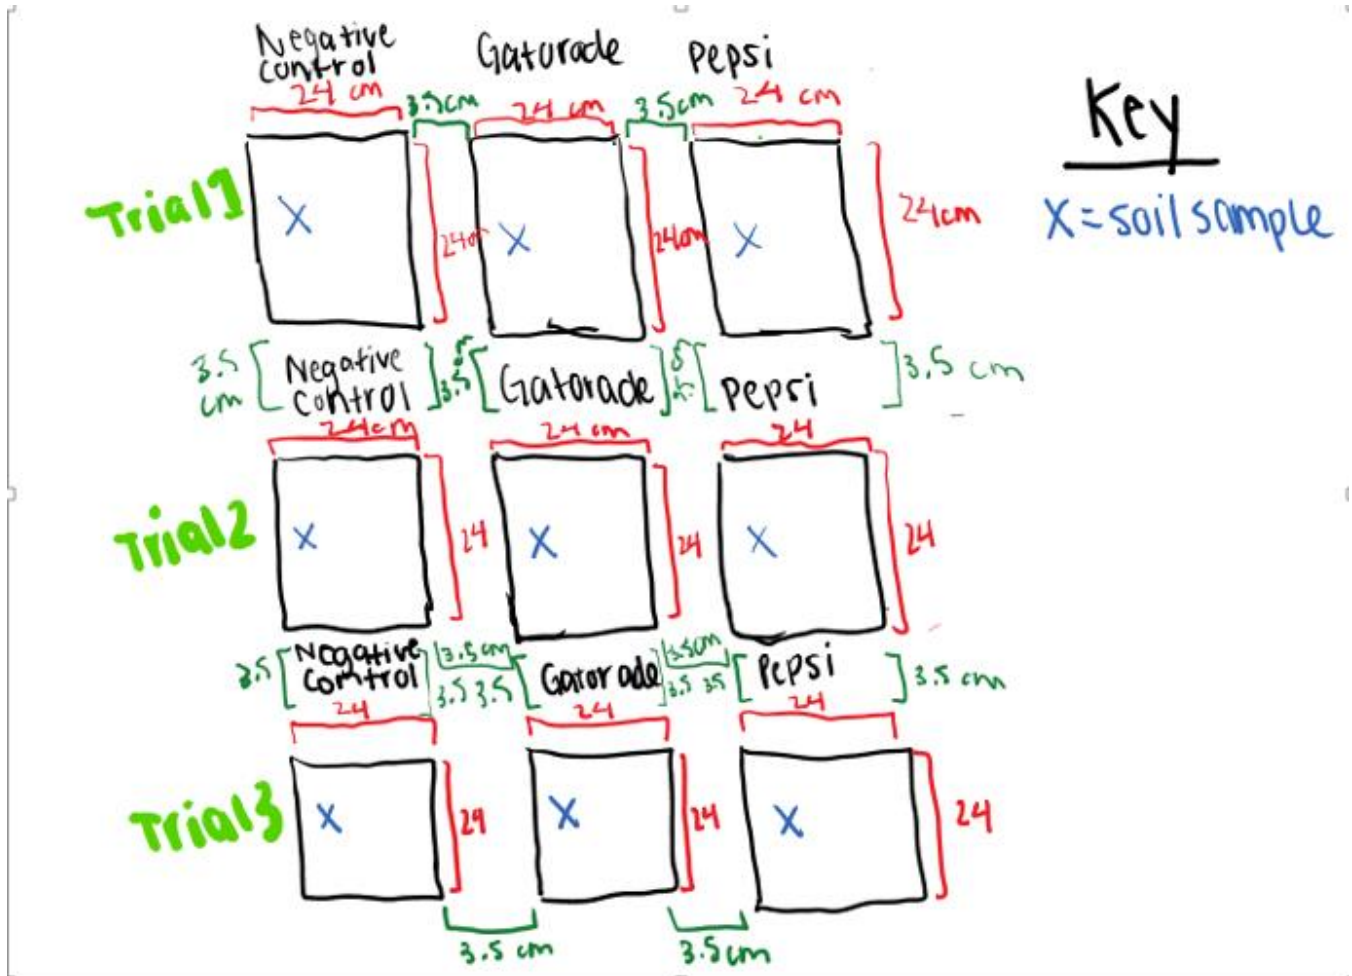 Negative
control
Gatorade
Pepsi
24 cm
3.5cm
24 cm
3.5cm
24 cm
Key
X = soil sample
Trial 1
X
24cm
X
24cm
X
24cm
3.5
cm
Negative
control
3.5
Gatorade
Pepsi
3.5 cm
24cm
24 cm
24
Trial 2
X
24
X
24
X
24
3.5
Negative
control
3.5 cm
3.5 3.5
Gatorade
3.5cm
3.5 3.5
Pepsi
3.5 cm
24
24
24
Trial 3
X
24
X
24
X
24
3.5 cm
3.5 cm